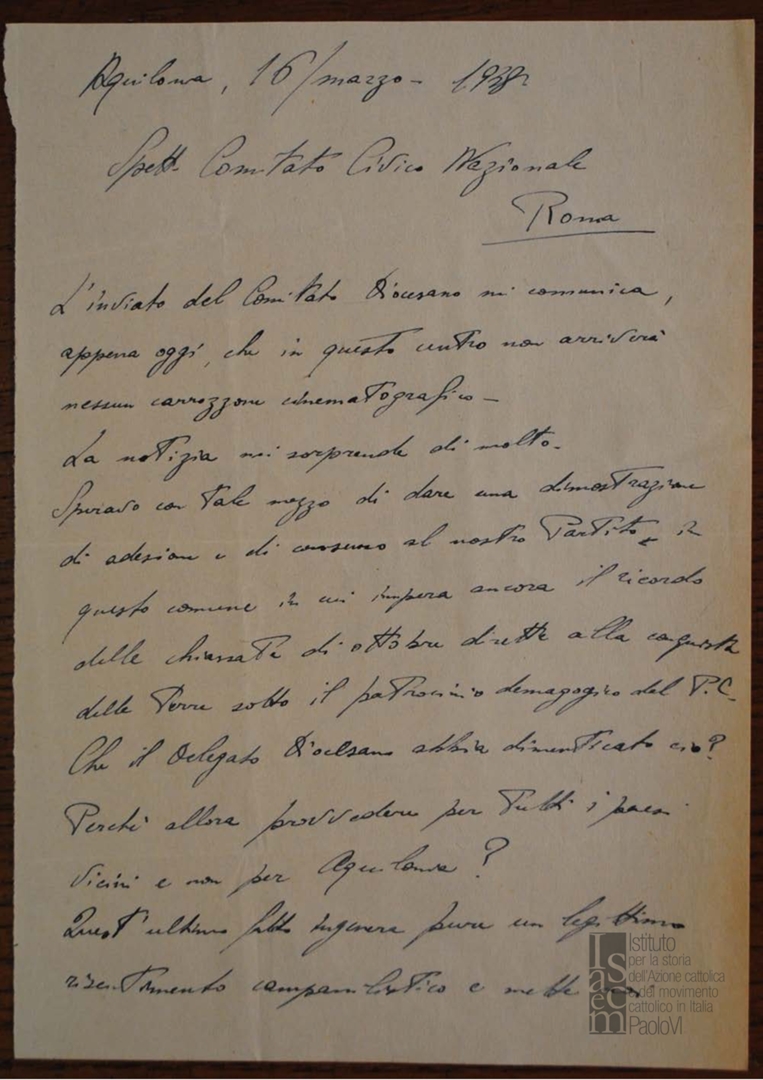 Aquilonia, 16/marzo -
Spett. Comitato Civico Nazionale
Roma
L'inviato del Comitato Diocesano mi comunica,
appena oggi, che in questo centro non arriverà
nessun carrozzone cinematografico -
La notizia mi sorprende di molto -
Speravo con tale mezzo di dare una dimostrazione
di adesione e di consenso al nostro Partito in
questo comune in cui impera ancora il ricordo
delle chiassate di ottobre dirette alla conquista
delle Terre sotto il patrocinio demagogico del P.C.
Che il Delegato Diocesano abbia dimenticato ciò?
Perchè allora provvedere per tutti i paesi
vicini e non per Aquilonia?
Quest'ultimo fatto ingenera pure un legittimo
risentimento campanilistico e mette
Istituto
per la storia
dell'Azione cattolica
e del movimento
cattolico in Italia
PaoloVI